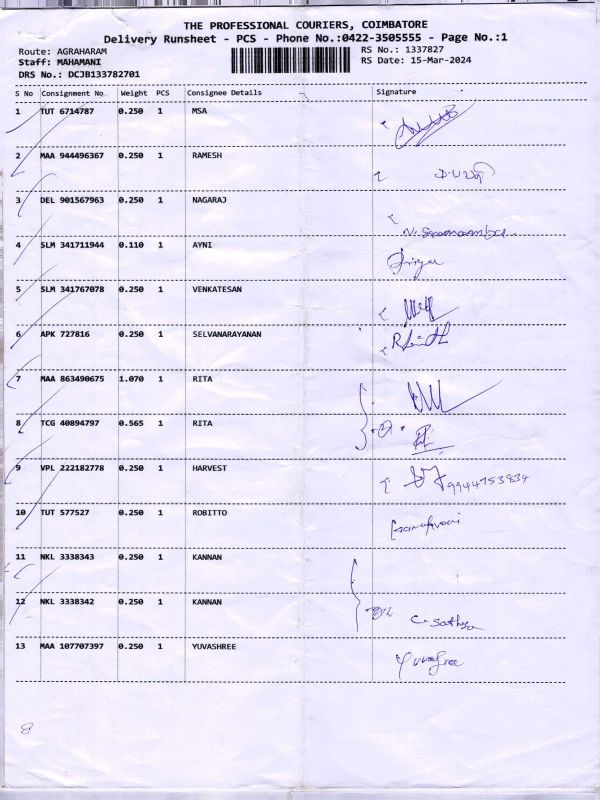 THE PROFESSIONAL COURIERS, COIMBATORE
Delivery Runsheet - PCS - Phone No.:0422-3505555 - Page No.:1
Route: AGRAHARAM RS No.: 1337827
Staff: MAHAMANI RS Date: 15-Mar-2024
DRS No.: DCJB133782701
S No Consignment No Weight PCS Consignee Details Signature
1 TUT 6714787 0.250 1 MSA
2 MAA 944496367 0.250 1 RAMESH
3 DEL 901567963 0.250 1 NAGARAJ
4 SLM 341711944 0.110 1 AYNI
5 SLM 341767078 0.250 1 VENKATESAN
6 APK 727816 0.250 1 SELVANARAYANAN
7 MAA 863490675 1.070 1 RITA
8 TCG 40894797 0.565 1 RITA
9 VPL 222182778 0.250 1 HARVEST
9944753834
10 TUT 577527 0.250 1 ROBITTO
11 NKL 3338343 0.250 1 KANNAN
12 NKL 3338342 0.250 1 KANNAN
C. Sathya
13 MAA 107707397 0.250 1 YUVASHREE
8